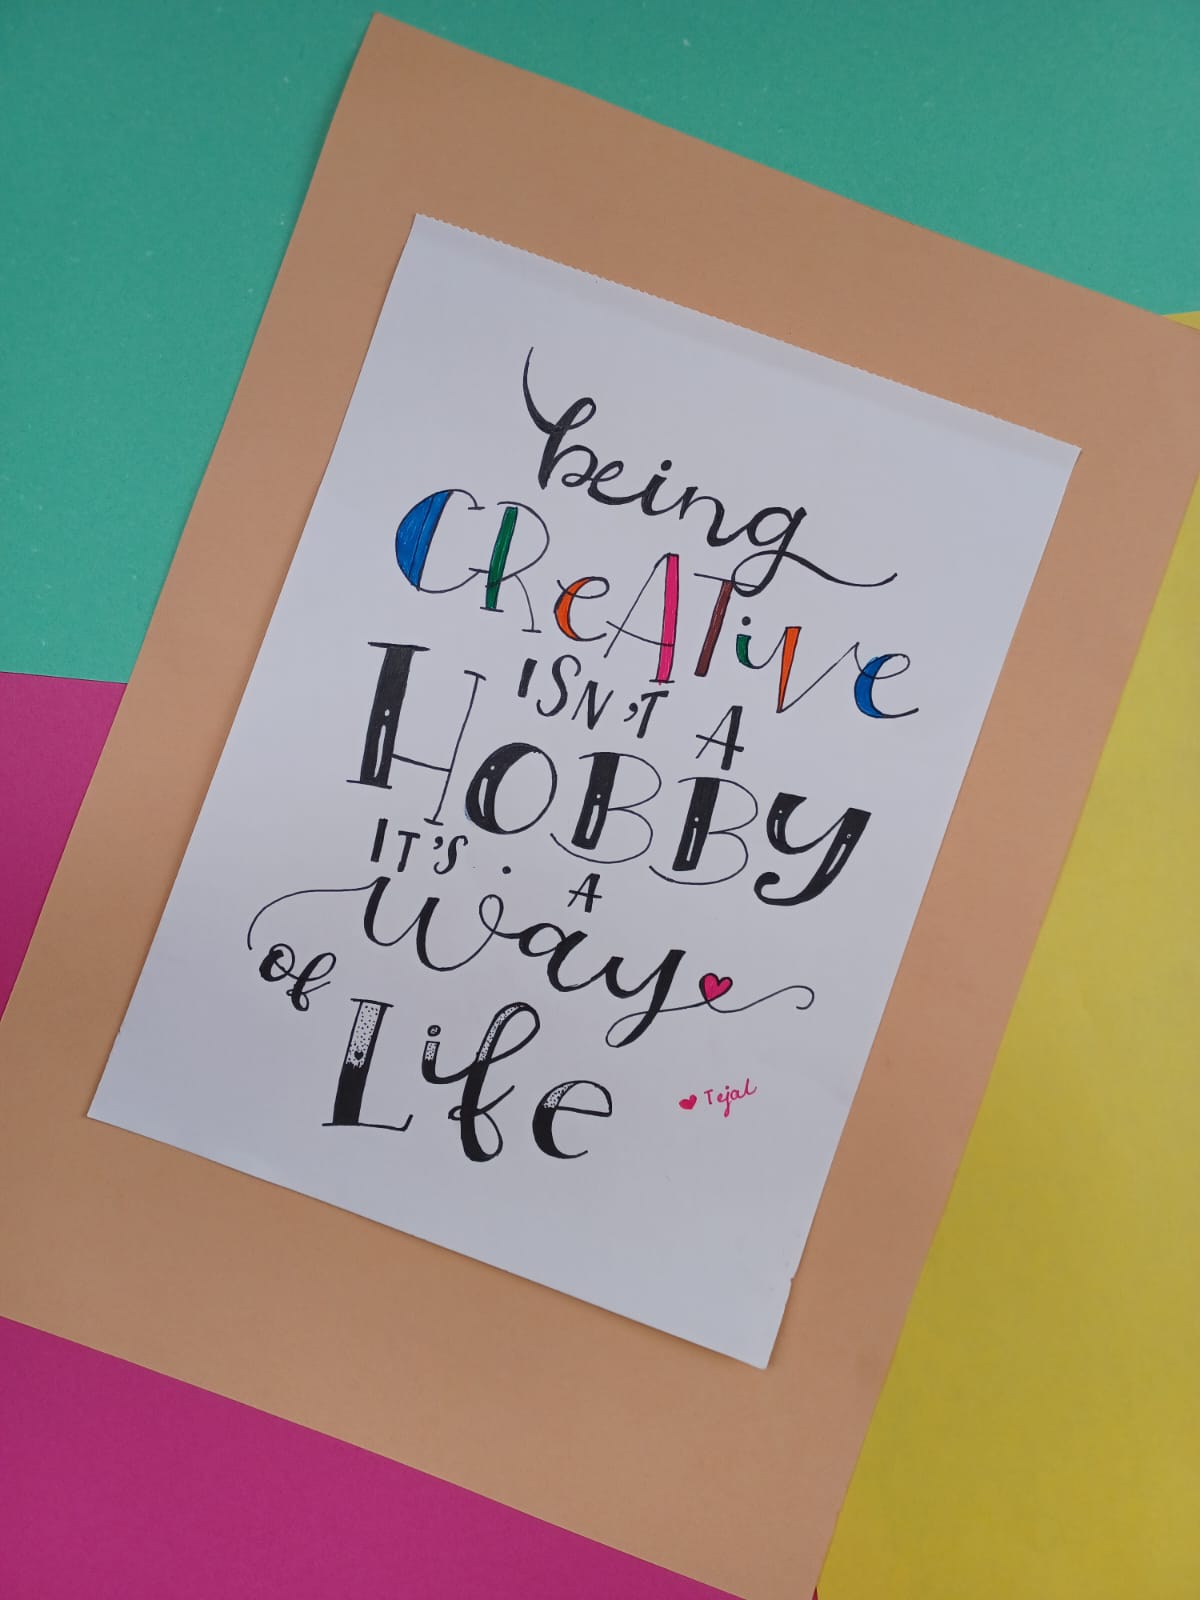 being
CREATIVE
ISN'T A
HOBBY
IT'S A
way
of
Life
Tejal